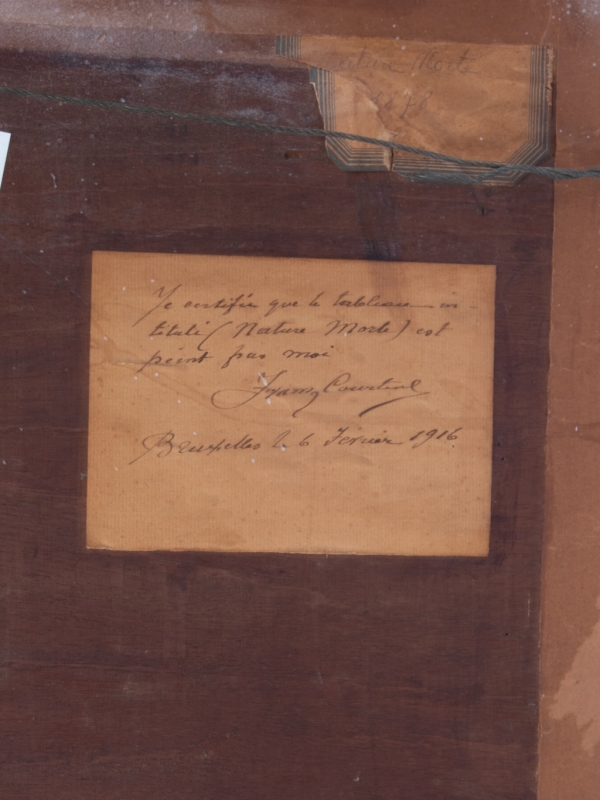 Nature Mort
Je certifie que le tableau in-
titulé (Nature Morte) est
peint par moi
Franz Courtens
Bruxelles le 6 Février 1916.